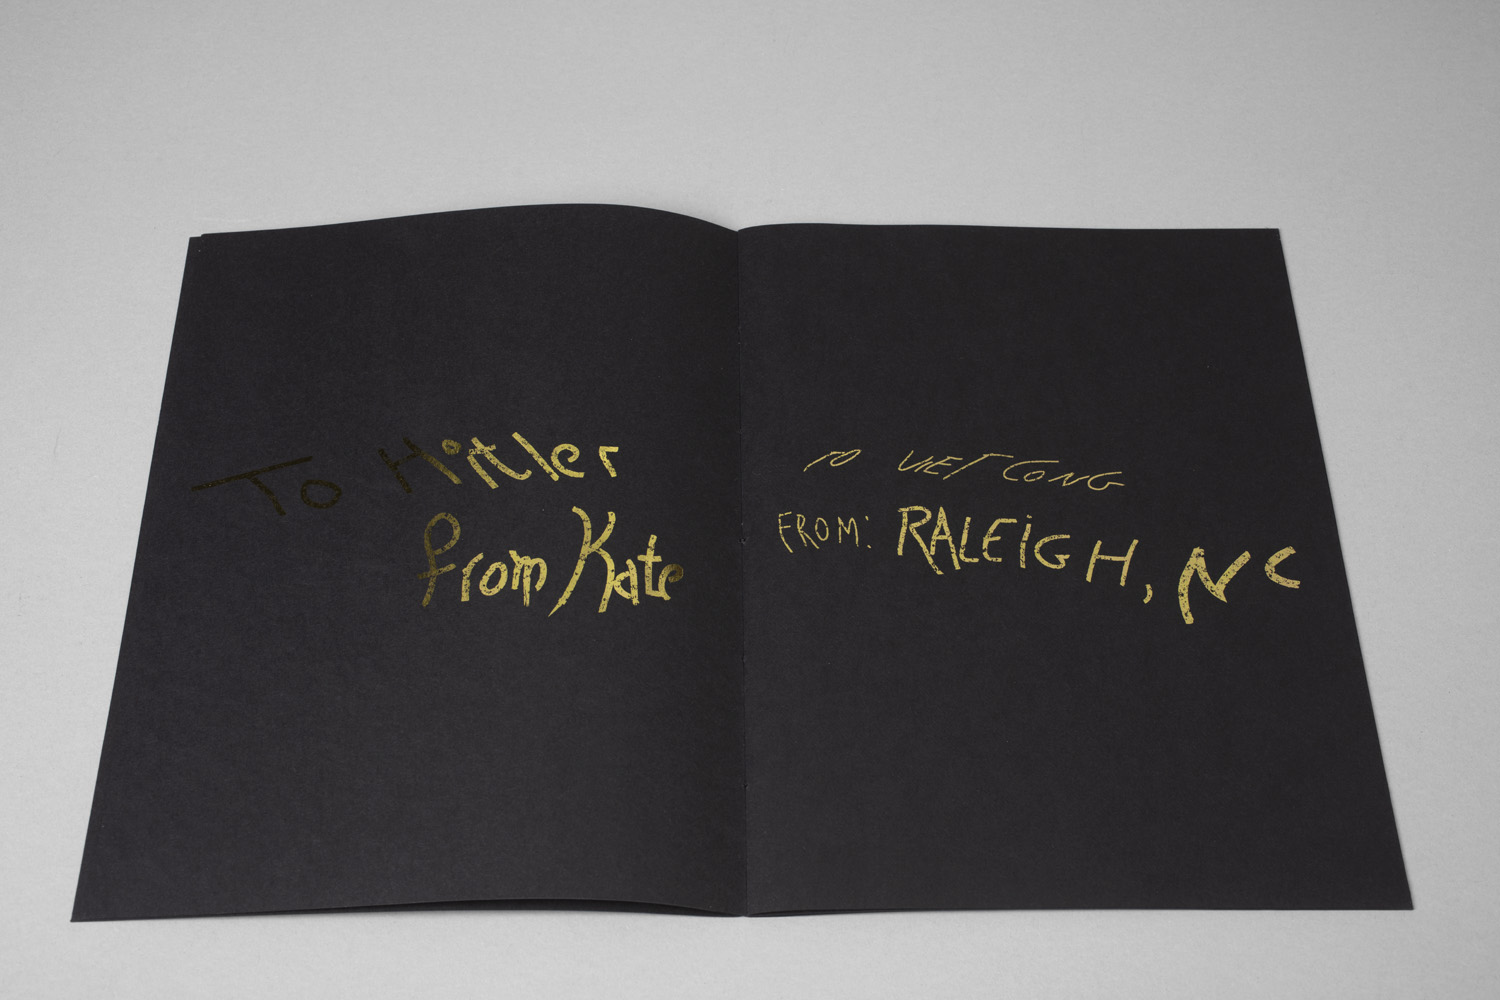 To Hitler
from Kate
TO VIET CONG
FROM: RALEIGH, NC